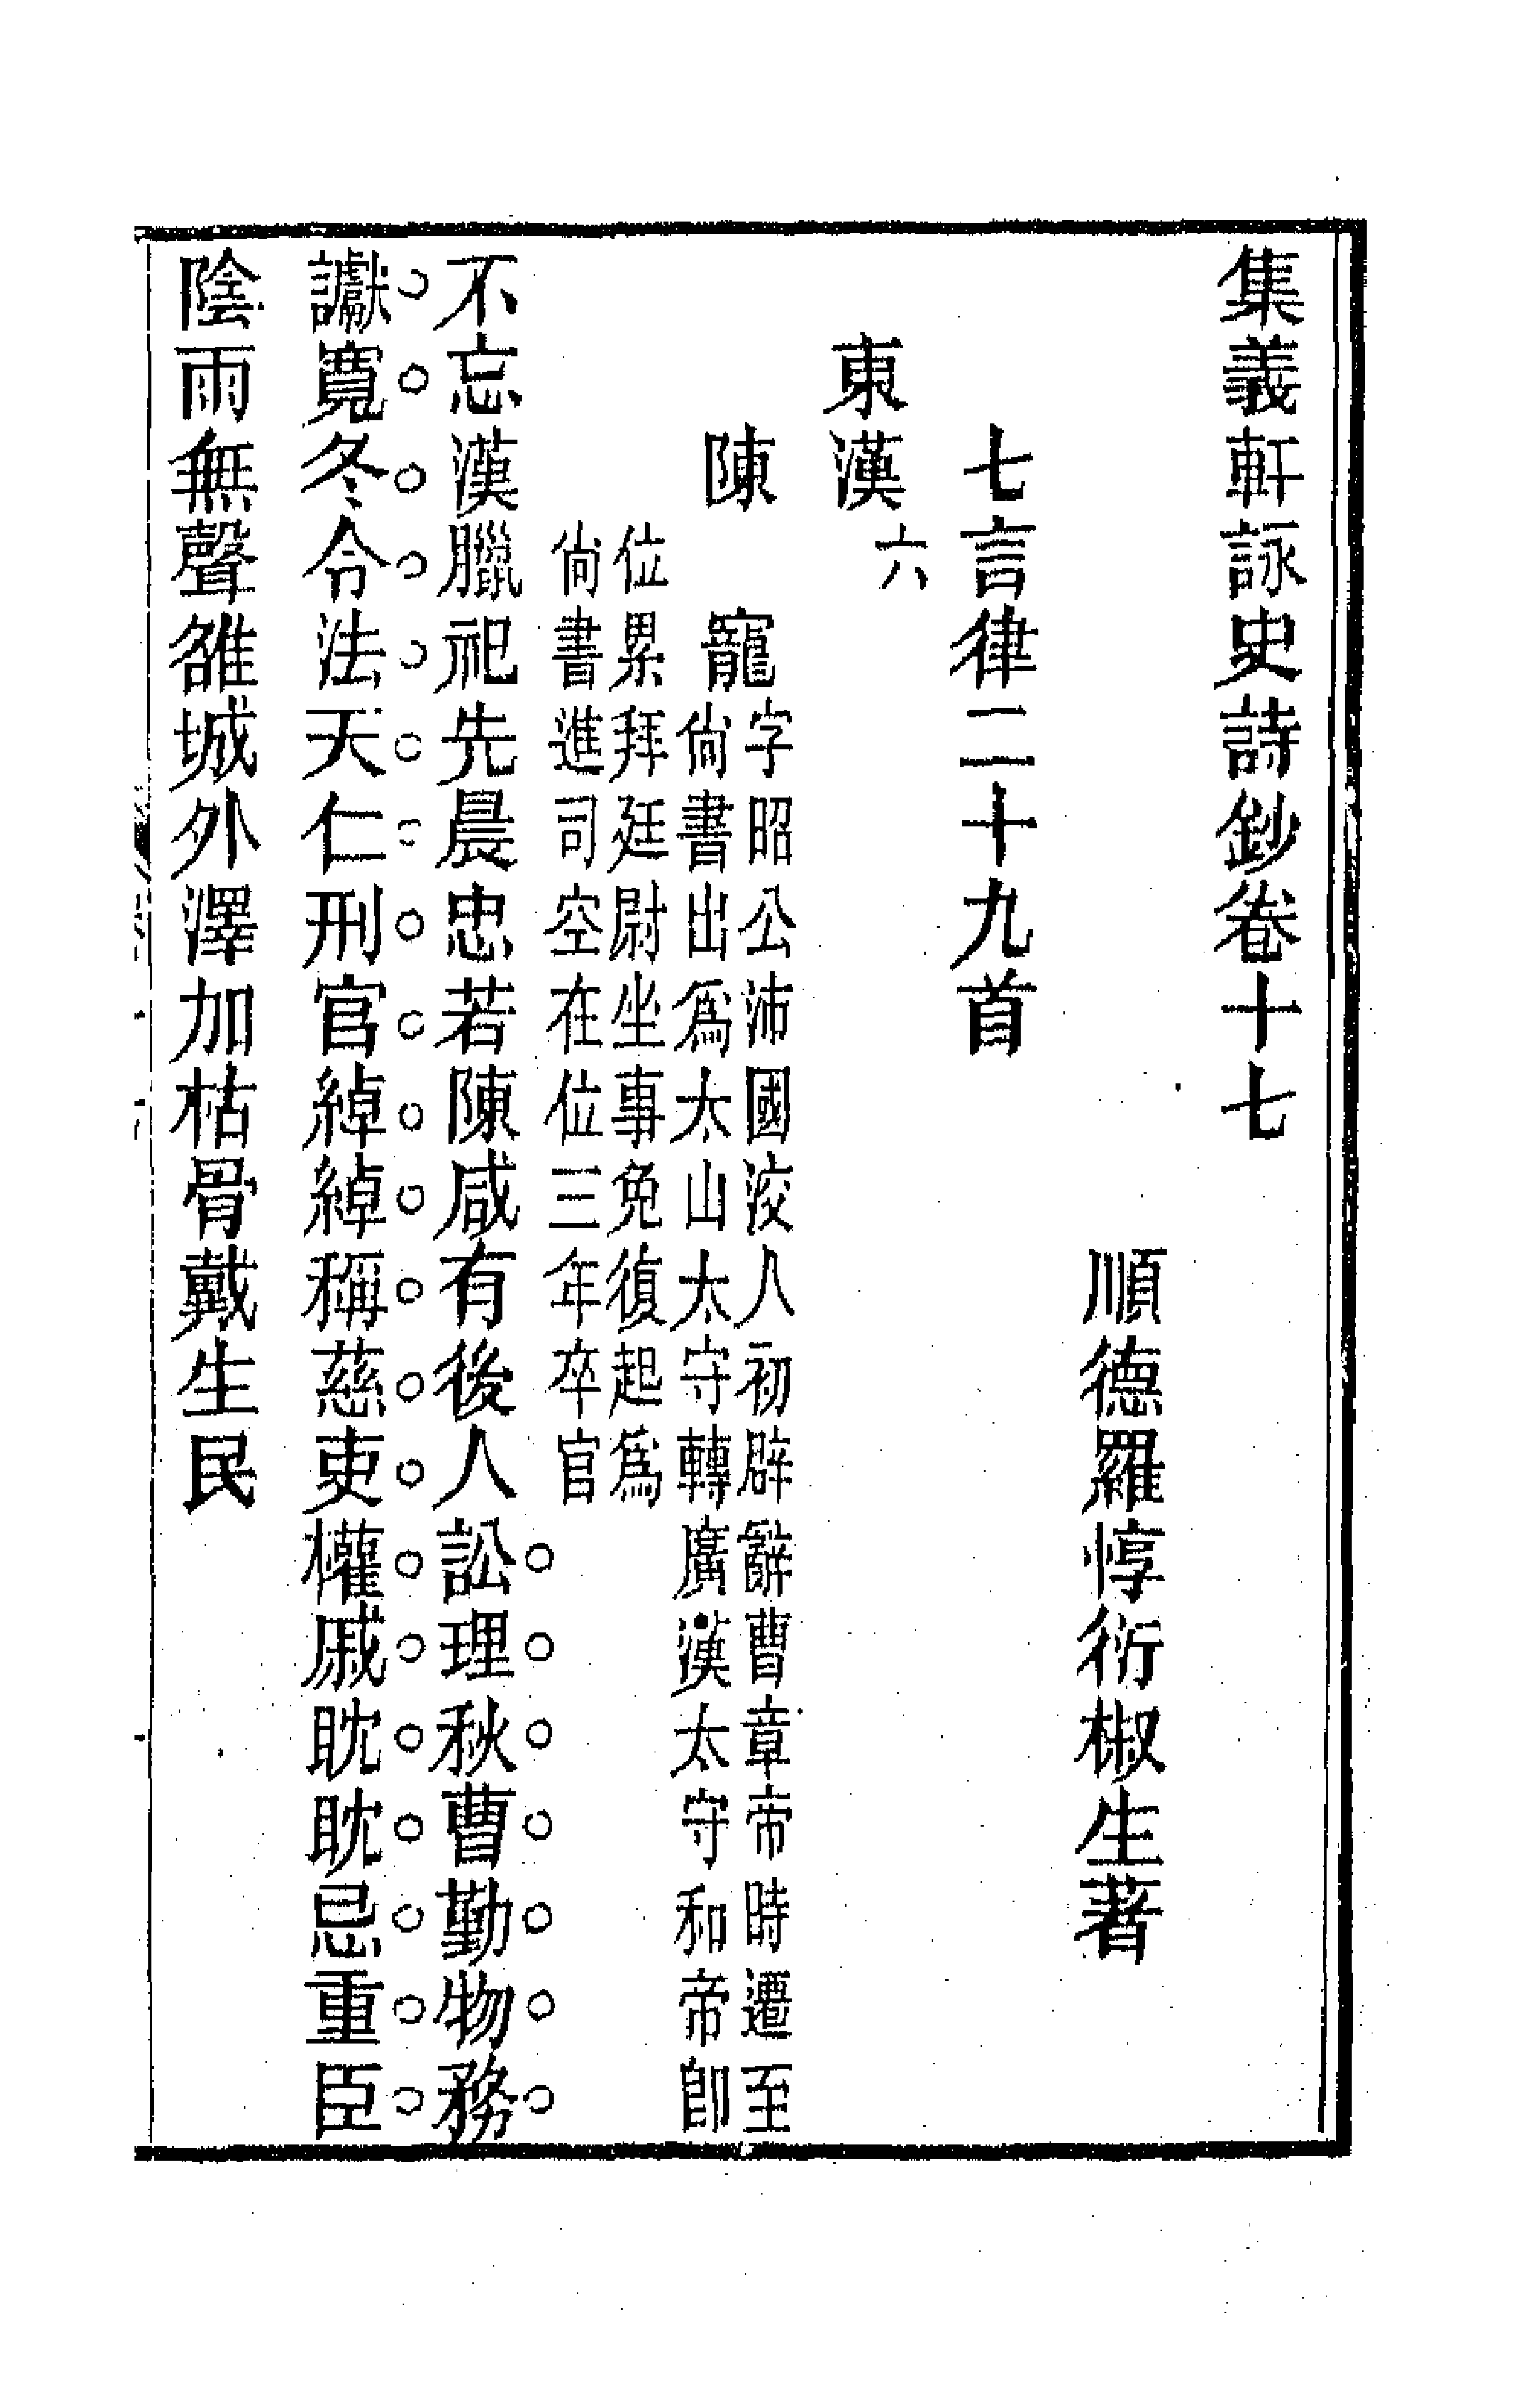 集義軒詠史詩鈔卷十七
順德羅惇衍椒生著
七言律二十九首
東漢六
陳寵
字昭公沛國洨人初辟辭曹章帝時遷至
尙書出爲太山太守轉廣漢太守和帝卽
位累拜廷尉坐事免復起爲
尙書進司空在位三年卒官
不忘漢臘祀先晨忠若陳咸有後人訟理秋曹勤物務
讞寬冬令法天仁刑官綽綽稱慈吏權戚眈眈忌重臣
陰雨無聲雒城外澤加枯骨戴生民